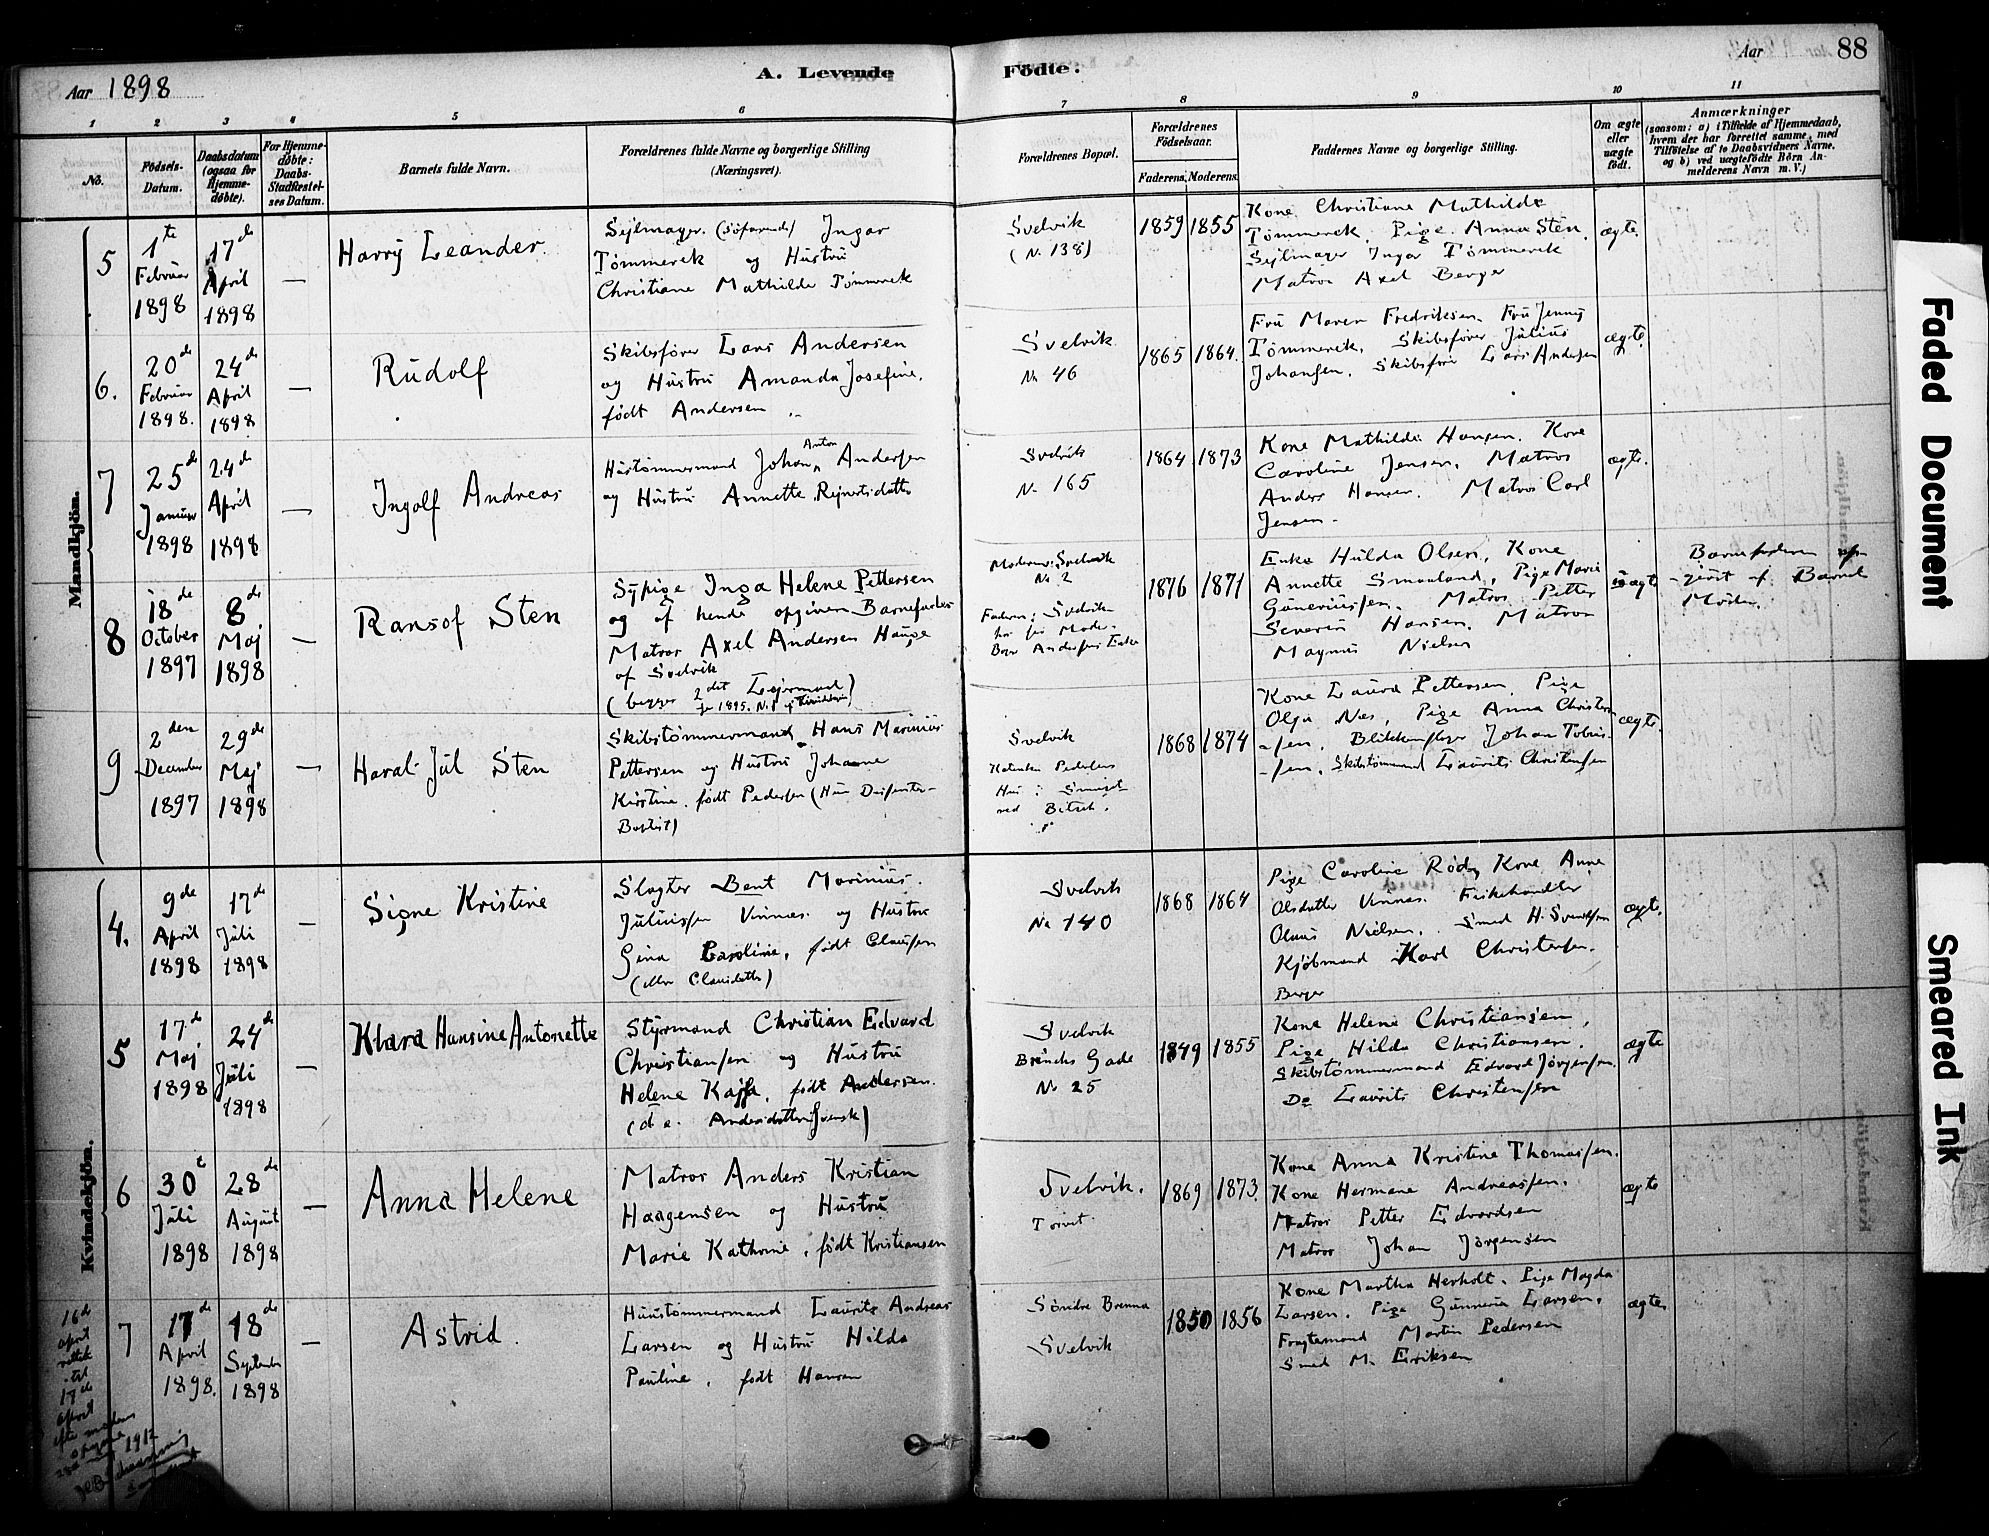 Aar 1898
A. Levende Födte.
Aar 88
1 2 3 4 5 6 7 8 9 10 11
No.
Födsels-Datum.
Daabsdatum (ogsaa for Hjemme-døbte).
For Hjemme-døbte: Daabs-Stadfæstel-ses Datum.
Barnets fulde Navn.
Forældrenes fulde Navne og borgerlige Stilling (Næringsvei).
Forældrenes Bopæl.
Forældrenes Födselsaar.
Faderens. Moderens.
Faddernes Navne og borgerlige Stilling.
Om ægte eller uægte født.
Anmærkninger
(saasom: a) i Tilfælde af Hjemmedaab, hvem der har forrettet samme, med Tilføielse af to Daabsvidners Navne, og b) ved uægtefødte Börn An-melderens Navn m. V.)
Mandkjön.
5
1te Februar 1898
17de April 1898
—
Harry Leander.
Sejlmager. (Søfarende) Ingar
Tømmerek og Hustru
Christiane Mathilde Tømmerek
Svelvik
(N. 138)
1859 1855
Kone Christiane Mathilde
Tømmerek, Pige Anna Sten,
Sejlmager Ingar Tømmerek
Matros Axel Berger
ægte.
6.
20de Februar 1898.
24de April 1898
—
Rudolf
Skibsfører Lars Andersen
og Hustru Amanda Josefine,
født Andersen
Svelvik
No 46
1865 1864.
Fru Maren Fredriksen. Fru Jenny
Tømmerek, Skibsfører Julius
Johansen, Skibsfører Lars Andersen
ægte.
7
25de Januar 1898
24de April 1898
—
Ingolf Andreas
Hustømmermand Johan Anton Andersen
og Hustru Annette Rejertsdatter
Svelvik
No 165
1864 1873
Kone Mathilde Hansen. Kone
Caroline Jensen, Matros
Anders Hansen. Matros Carl
Jensen.
ægte.
8
18de October 1897
8de Maj 1898
—
Ransof Sten
Sypige Inga Helene Pettersen
og af hende opgiven Barnefader
Matros Axel Andersen Hauge
af Svelvik
(begges 2det Lejermaal)
Moderen: Svelvik
No 2
Faderen: Svelvik
hos sin Moder
Andersens Enke
1876 1871
Enke Hulda Olsen, Kone
Annette Smaaland, Pige Marie
Guneriussen. Matros Petter
Severin Hansen. Matros
Magnus Nielsen
uægte
Barnefaderen
af Barnets
Moder.
9
2den December 1897
29de Maj 1898
—
Haral Jul Sten
Skibstømmermand Hans Marinius
Pettersen og Hustru Johanne
Kirstine, født Pedersen (Hun Dissenter-
Baptist)
Svelvik
Pedersens
Hus:
ved
1868 1874
Kone Laura Pettersen, Pige
Olga Næs, Pige Anna Christen
-sen, Blikkenslager Johan Tobias-
-sen, Skibstømmermand Laurits Christensen
ægte.
Kvindekjön.
4.
9de April 1898
17de Juli 1898
—
Signe Kristine
Slagter Bent Marinius.
Juliussen Vinnæs og Hustru
Gina Caroline, født Clausen
(eller Clausdatter)
Svelvik
No 140
1868 1864
Pige Caroline Rødby Kone Anna
Olsdatter Vinnæs. Fiskehandler
Olaus Nielsen, Smed H. Svendsen
Kjøbmand Karl Christensen.
Berger
ægte.
5
17de Maj 1898
24de Juli 1898
—
Klara Hansine Antonette
Styrmand Christian Edvard
Christiansen og Hustru
Helene Kajsa, født Andersen.
(d. e. Andersdatter Svensk)
Svelvik
Gade
No 25
1849 1855
Kone Helene Christiansen,
Pige Hilda Christiansen.
Skibstømmermand Edvard Jørgensen.
Do Laurits Christensen
ægte
6
30t Juli 1898
28de August 1898
—
Anna Helene
Matros Anders Kristian
Haagensen og Hustru
Marie Kathrine, født Kristiansen
Svelvik.
Torvet
1869 1873.
Kone Anna Kristine Thomassen.
Kone Hermane Andreassen.
Matros Petter Edvardsen
Matros Johan Jørgensen
ægte
7
17de April 1898.
18de September 1898
—
Astrid.
Huustømmermand Laurits Andreas
Larsen og Hustru Hilda
Pauline, født Hansen
Søndre Brenna
Svelvik
1850 1856
Kone Martha Herholt. Pige Magda
Larsen, Pige Gunneria Larsen,
Fragtemand Martin Pedersen
Smed M. Eriksen
ægte.
16de
april
rettet
til
17de
april
efter moderens
opgave
1912
Faded Document
Smeared Ink